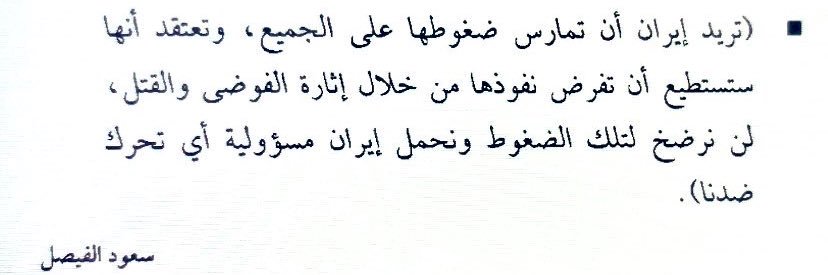 ▪ (تريد إيران أن تمارس ضغوطها على الجميع، وتعتقد أنها
ستستطيع أن تفرض نفوذها من خلال إثارة الفوضى والقتل،
لن نرضخ لتلك الضغوط ونحمل إيران مسؤولية أي تحرك
ضدنا).
سعود الفيصل